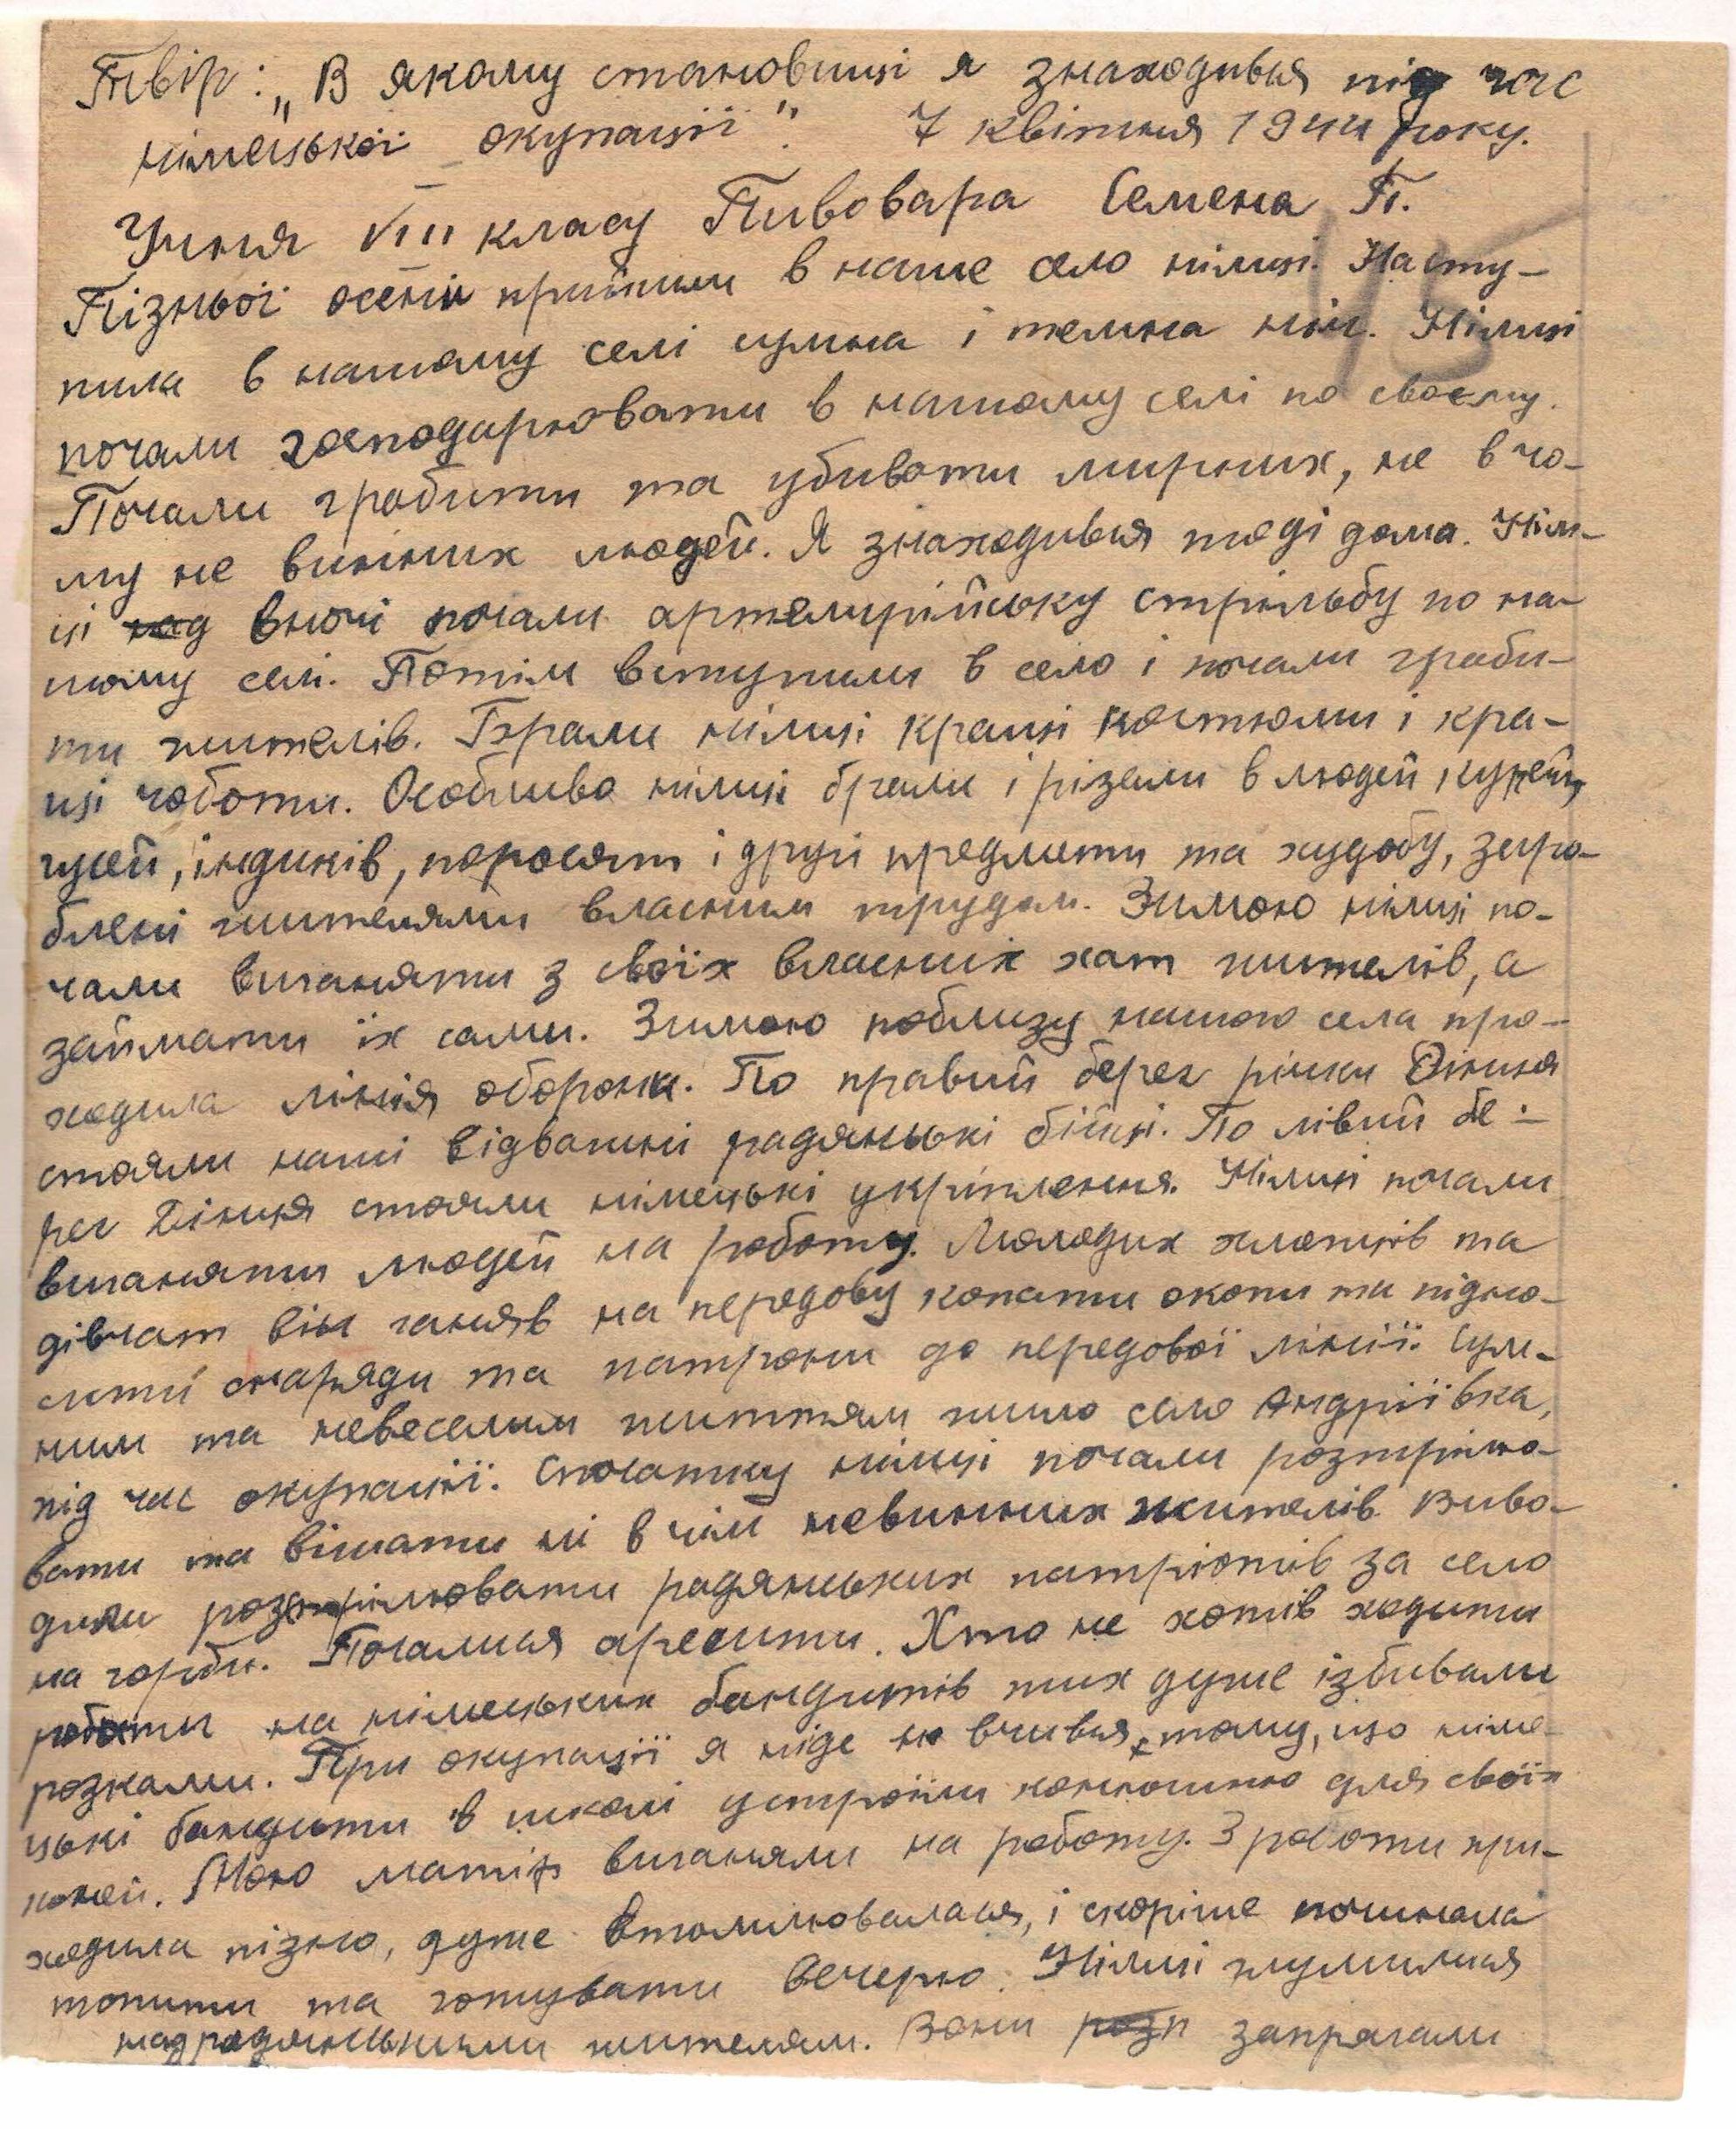 Твір: „В якому становищі я знаходився під час
німецької окупації". 7 квітня 1944 року.
Учня VIII класу Пивовара Семена П.
45
Пізньої осені прийшли в наше село німці. Насту-
пила в нашому селі сумна і темна ніч. Німці
почали господарювати в нашому селі по своєму.
Почали грабити та убивати мирних, не в чо-
му не винних людей. Я знаходився тоді дома. Нім-
ці над вночі почали артелирійську стрільбу по на-
шому селі. Потім вступили в село і почали граби-
ти жителів. Брали німці кращі костюми і кра-
щі чоботи. Особливо німці брали і різали в людей курей,
гусей, індиків, поросят і другі предмети та худобу, заро-
блені жителями власним трудом. Зимою німці по-
чали виганяти з своїх власних хат жителів, а
займати їх сами. Зимою поблизу нашого села про-
ходила лінія оборони. По правий берег річки Дінця
стояли наші відважні радянські бійці. По лівий бе-
рег Дінця стояли німецькі укріплення. Німці почали
виганяти людей на роботу. Молодих хлопців та
дівчат він ганяв на передову копати окопи та підно-
сити снаряди та патрони до передової лінії. Сум-
ним та невеселим життям жило село Андріївка,
під час окупації. Спочатку німці почали розтрілю-
вати та вішати ні в чім невинних жителів. Виво-
дили розтрілювати радянських патріотів за село
на горби. Почалися аресити. Хто не хотів ходити
робити на німецьких бандитів тих дуже ізбивали
розками. При окупації я ніде не вчився, тому, що німе-
цькі бандити в школі устроїли конюшню для своїх
коней. Мою матір виганяли на роботу. З роботи при-
ходила пізно, дуже втомлювалася, і скоріше починала
топити та готувати вечерю. Німці глумилися
над радянськими жителям. Вони розп запрягали